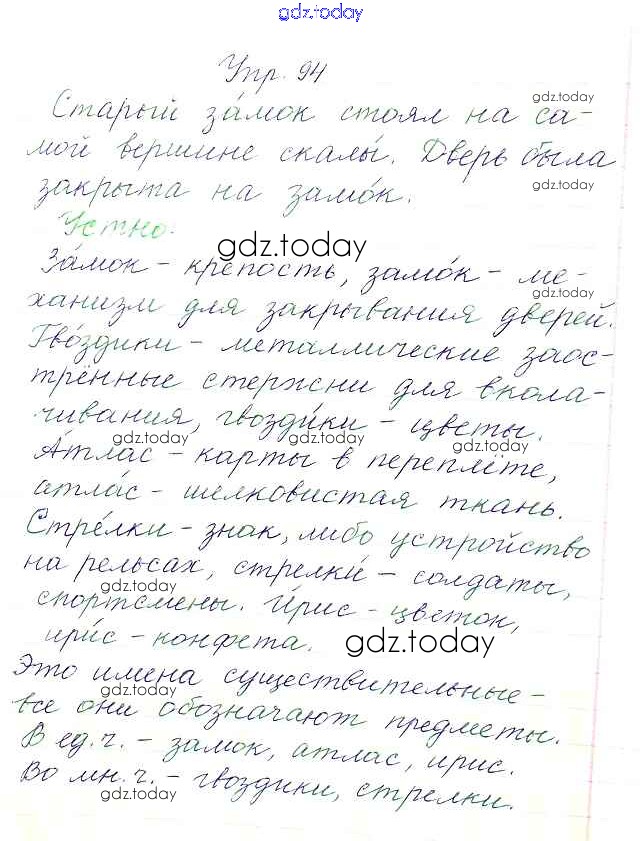 gdz.today
Упр. 94
gdz.today
Старый за́мок стоял на са-
мой вершине скалы́. Дверь была
gdz.today
закрыта на замо́к.
Устно.
gdz.today
За́мок – крепость, замо́к – ме-
gdz.today
ханизм для закрывания дверей.
Гво́здики – металлические заос-
трённые стержни для вкола-
чивания, гвозди́ки – цветы.
gdz.today gdz.today gdz.today
А́тлас – карты в переплёте,
атла́с – шелковистая ткань.
Стре́лки – знак, либо устройство
на рельсах, стрелки́ – солдаты,
gdz.today gdz.today
спортсмены. И́рис – цветок,
ири́с – конфета. gdz.today
Это имена существительные –
gdz.today
все они обозначают предметы.
В ед.ч. – замок, атлас, ирис.
gdz.today
Во мн.ч. – гвоздики, стрелки.
gdz.today